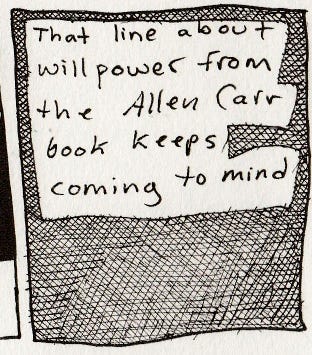 That line about
willpower from
the Allen Carr
book keeps
coming to mind